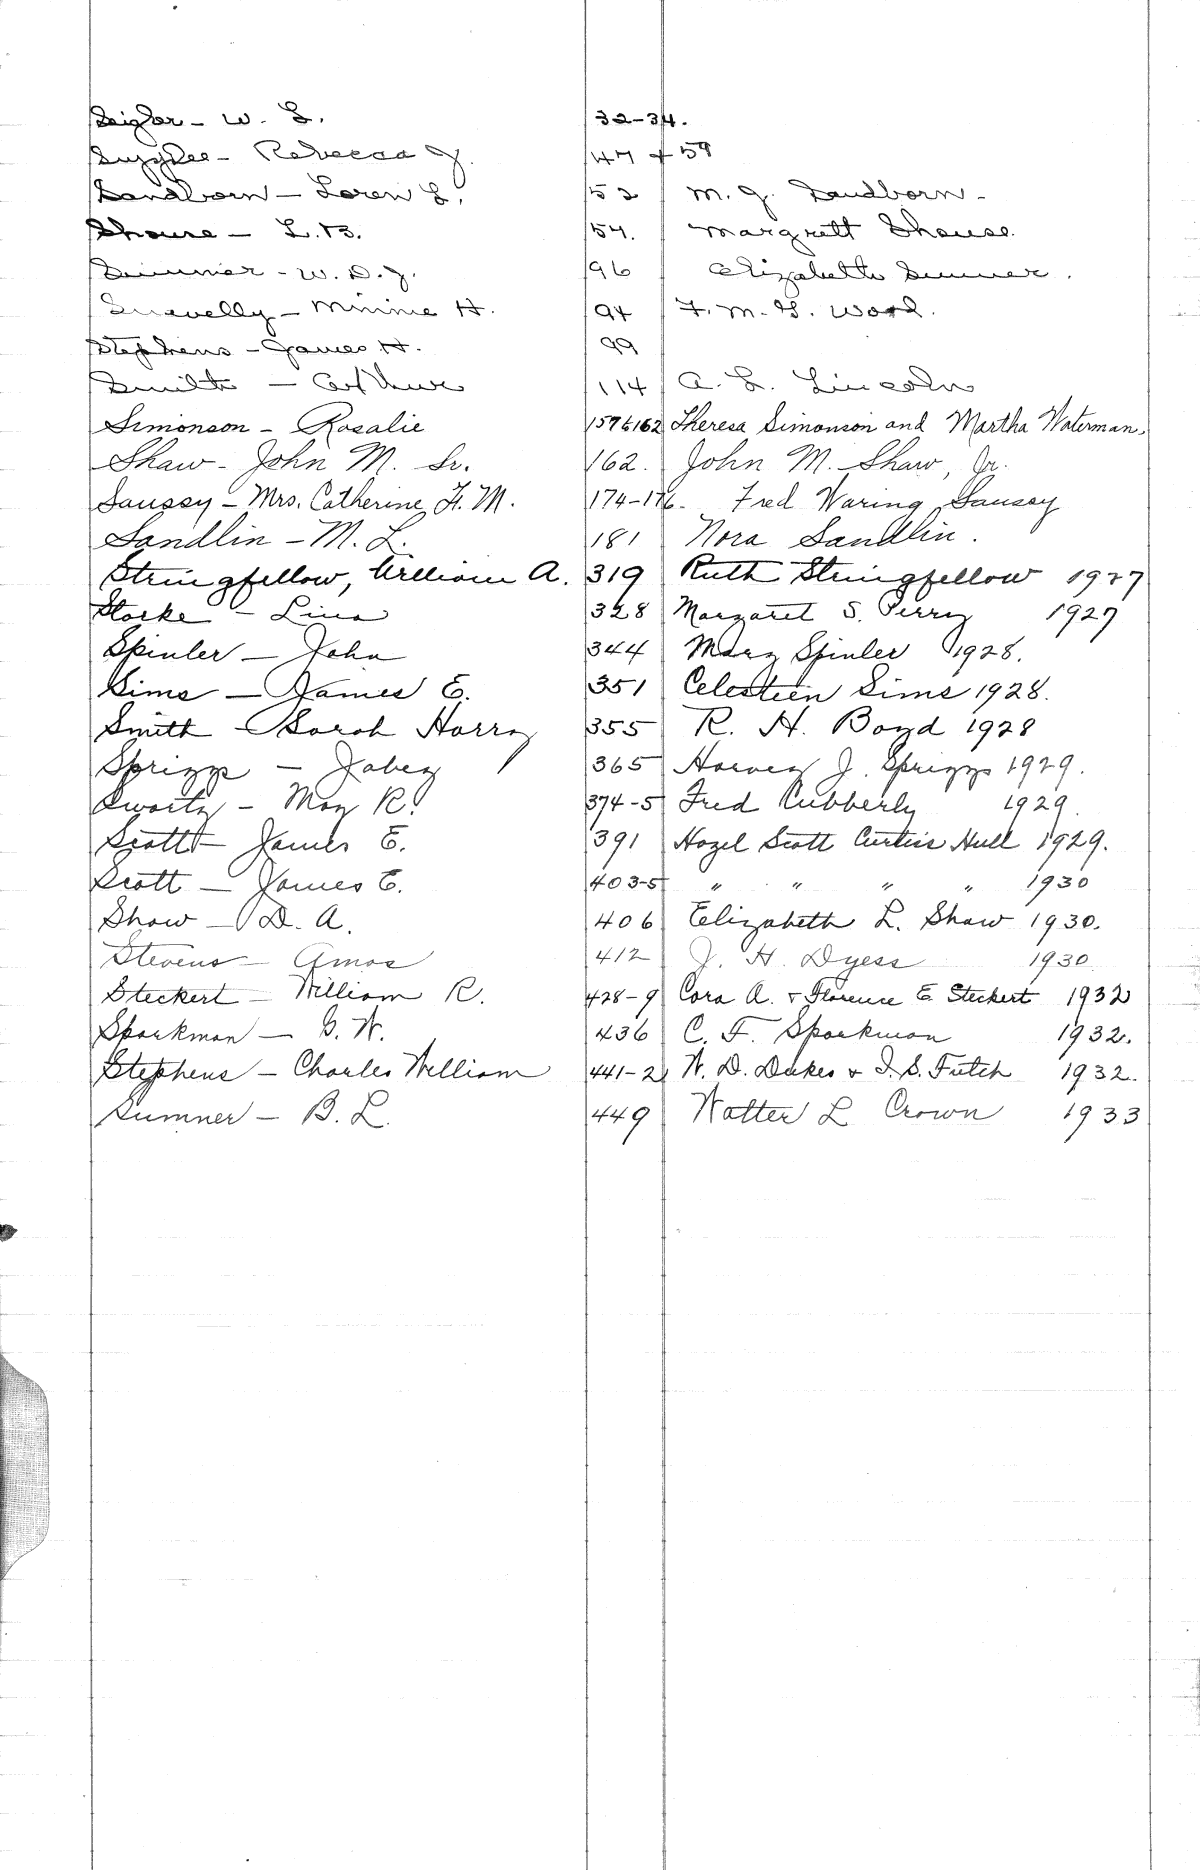 Seigler - W. L. 32-34.
Rebecca J. 47 + 58
Sandborn - Loren L. 52 M. J. Sandborn -
Shouse - L. B. 54. Margrett Shouse.
Summer - W. D. J. 96 Elizabeth Summer.
Snavelly - Minnie H. 94 F. M. G. Wood.
Stephens - James H. 99
Smith - Arthur 114 A. L. Lincoln
Simonson - Rosalie 157 & 162 Theresa Simonson and Martha Waterman.
Shaw - John M. Sr. 162. John M. Shaw, Jr.
Saussy - Mrs. Catherine F. M. 174-176. Fred Waring Saussy
Sandlin - M. L. 181 Nora Sandlin.
Stringfellow, William A. 319 Ruth Stringfellow 1927
Storke - Lina 328 Margaret S. Perry 1927
Spinler - John 344 Mary Spinler 1928.
Sims - James E. 351 Celestien Sims 1928.
Smith - Sarah Harry 355 R. H. Boyd 1928
Spriggs - Jabez 365 Harvey J. Spriggs 1929.
Swartz - May R. 374-5 Fred Cubberly 1929.
Scott - James E. 391 Hazel Scott Curtiss Hull 1929.
Scott - James E. 403-5 " " " " 1930
Shaw - D. A. 406 Elizabeth L. Shaw 1930.
Stevens - Amos 412 J. H. Dyess 1930.
Steckert - William R. 428-9 Cora A. & Florence E. Steckert 1932
Sparkman - G. W. 436 C. F. Sparkman 1932.
Stephens - Charles William 441-2 W. D. Dukes & I. S. Futch 1932.
Sumner - B. L. 449 Walter L Crown 1933